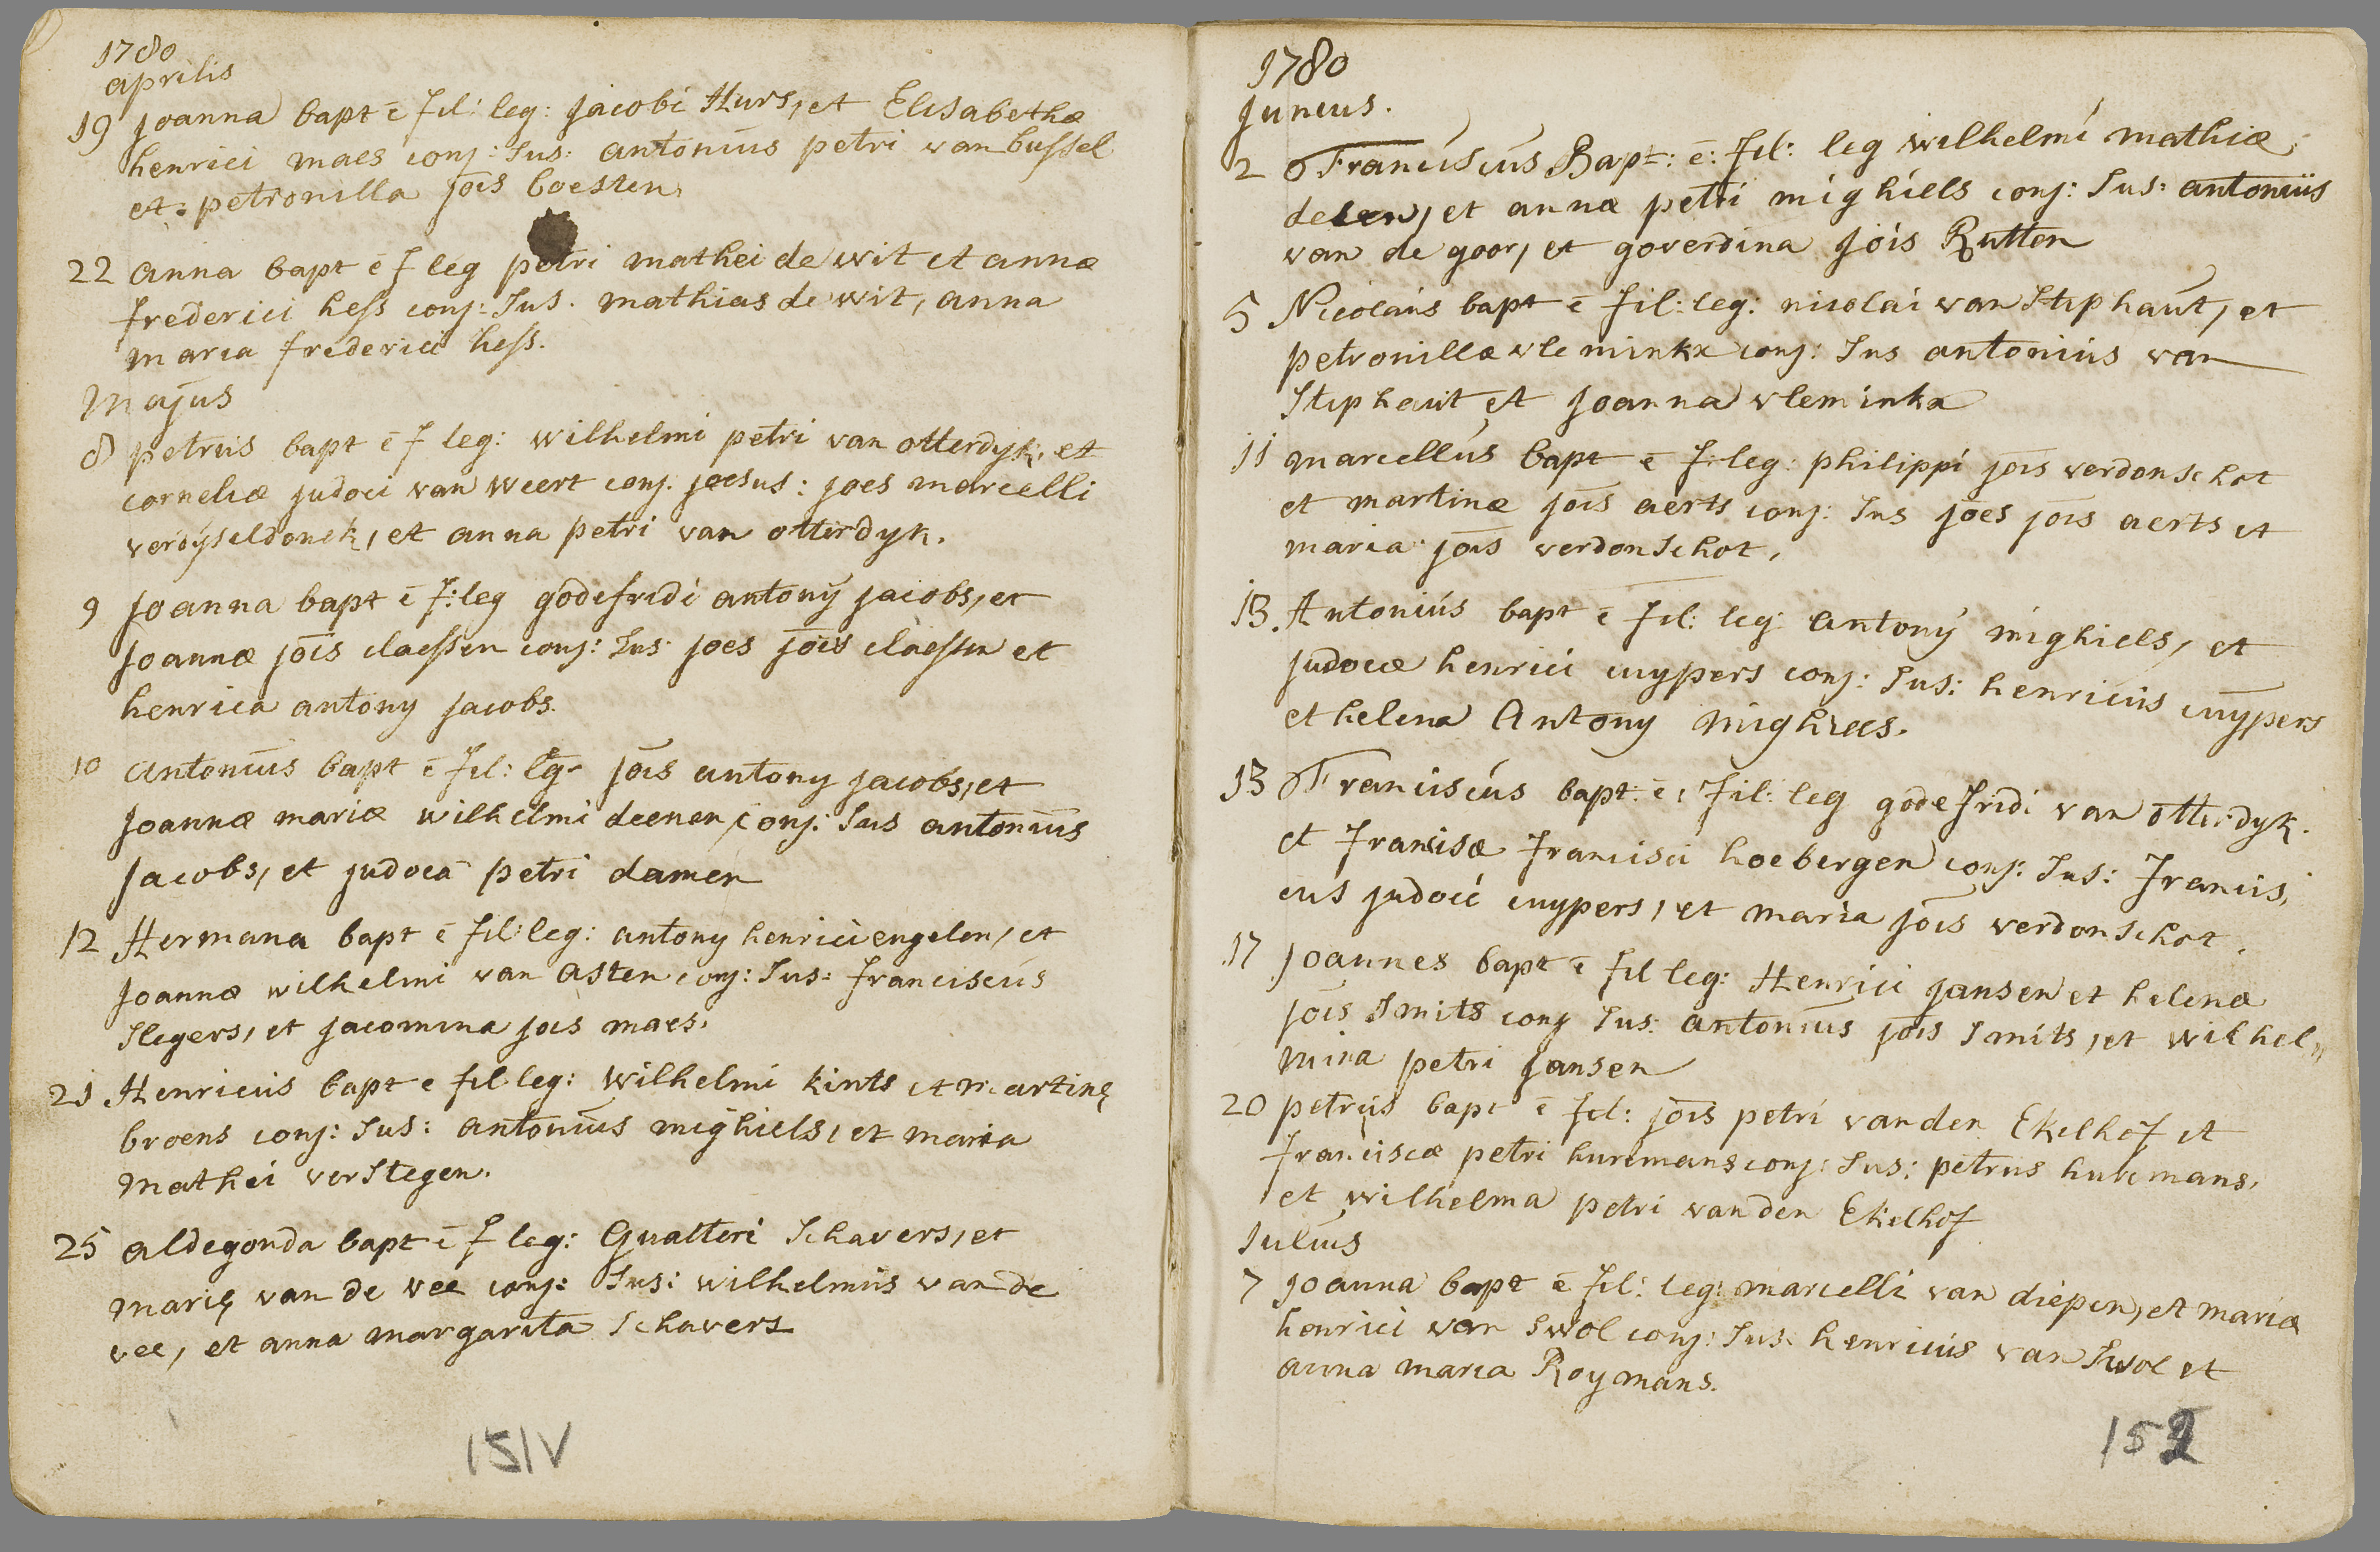 1780
aprilis
19 Joanna bapt ē fil: leg: Jacobi Hurs, et Elisabethæ
henrici maes conj: Sus: antonius petri van bussel
et petronilla jōis boesten
22 anna bapt ē f leg petri mathei de wit et annæ
frederici hess conj: Sus. mathias de wit, anna
maria frederici hess.
Majus
8 petrus bapt ē f leg: wilhelmi petri van otterdyk, et
corneliæ judoci van weert conj. joesus: joes marcelli
verdyseldonck, et anna petri van otterdyk.
9 Joanna bapt ē f: leg godefridi antonÿ jacobs, et
Joannæ jōis claessen conj: Sus: joes jōis claessen et
henrica antony jacobs.
10 Antonius bapt ē fil: lg jōis antony jacobs, et
Joannæ mariæ wilhelmi deenen conj: Sus antonius
Jacobs, et judoca petri damen
12 Hermana bapt ē fil: leg: antony henrici engelen, et
Joannæ wilhelmi van asten conj: Sus: franciscus
Slegers, et jacomina jois maes.
21 Henricus bapt e fil leg: wilhelmi kints et martinę
broens conj: Sus: antonius mighiels, et maria
mathei verstegen.
25 aldegonda bapt ē f leg: Gualteri Schavers, et
marię van de vee conj: Sus: wilhelmus van de
vee, et anna margarita Schavers
151V
1780
Junius.
2 Franciscus Bapt: ē: fil: leg wilhelmi mathiæ
deeen, et annæ petri mighiels conj: Sus: antonius
van de goor, et goverdina jōis Rutten
5 Nicolaus bapt ē fil: leg: nicolai van Stiphaut, et
petronillæ vleminkx conj: Sus antonius van
Stiphaut et Joanna vleminkx
11 marcellus bapt ē f: leg: philippi jōis verdonschot
et martinæ jōis aerts conj: Sus jōes jōis aerts et
maria jōis verdonschot.
13. Antonius bapt ē fil: leg: antonÿ mighiels, et
judocæ henrici cuypers conj: Sus: henricus cuypers
et helena Antony mighiels.
13 Franciscus bapt: ē, fil: leg godefridi van otterdyk.
et francisæ francisci hoebergen conj: Sus: francis,
cus judoci cuypers, et maria jōis verdonschot.
17 Joannes bapt ē fil leg: Henrici jansen et helenæ
jōis Smits conj Sus: antonius jōis Smits, et wilhel„
mina petri Jansen
20 petrus bapt ē fil: jōis petri vanden Ekelhof et
franciscæ petri hurkmans conj: Sus: petrus hurkmans,
et wilhelma petri vanden Ekelhof
Julius
7 Joanna bapt ē fil: leg: marcelli van diepen, et mariæ
henrici van Swol conj: Sus: henricus van Swol et
anna maria Roymans.
152